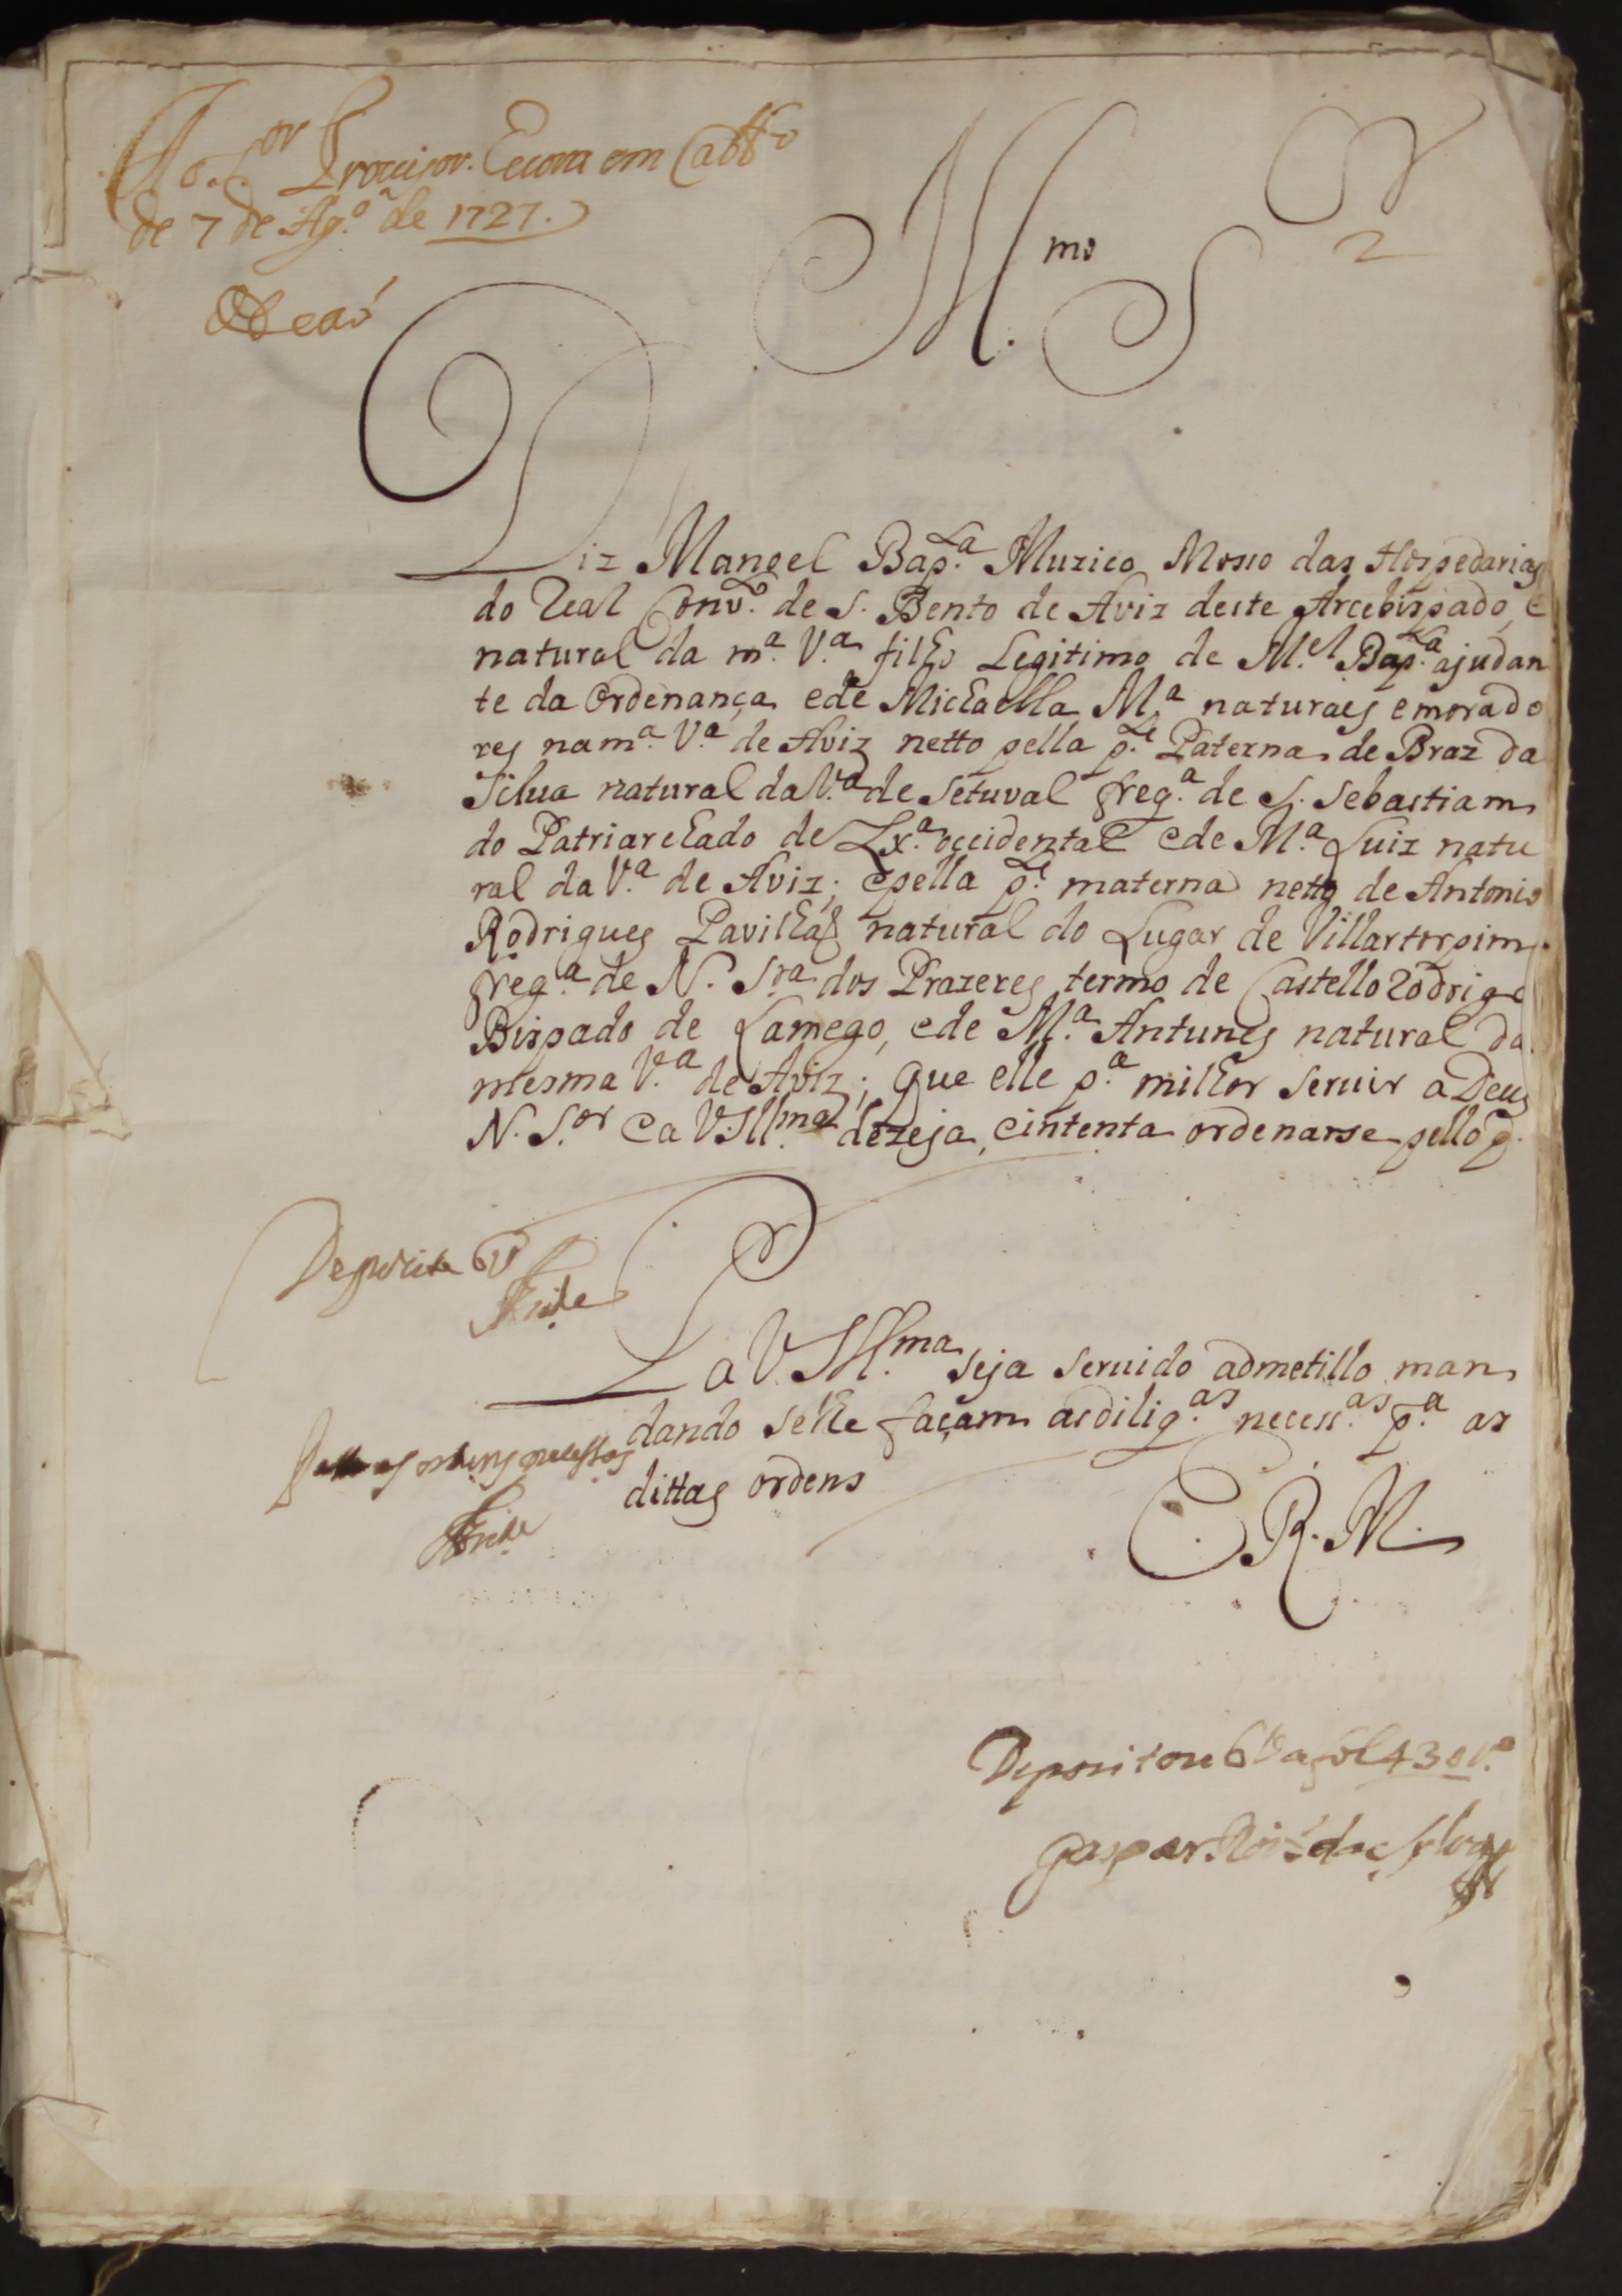 Ao S.or Provisor. Evora em Cabb.o
de 7 de Ag.o de 1727.
Deaó
2
Ill.mo S.r
Diz Manoel Bap.ta Muzico Mosso das Hospedarias
do Real Conv.to de S. Bento de Aviz deste Arcebispado, e
natural da m.a V.a filho Legitimo de M.el Bap.ta ajudan
te da Ordenança, e de Michaella M.a naturaes e morado
res na m.a V.a de Aviz netto pella p.te Paterna de Braz da
Silua natural da V.a de Setuval freg.a de S. Sebastiam
do Patriarchado de Lx.a occidental e de M.a Luiz natu
ral da V.a de Aviz; e pella p.te materna netto de Antonio
Rodrigues Pavilhaõ natural do Lugar de Villartorpim
freg.a de N. Sr.a dos Prazeres termo de Castello Rodrigo
Bispado de Lamego, e de M.a Antunes natural da
mesma V.a de Aviz; Que elle p.a milhor seruir a Deus
N. S.or e a V.Ill.ma dezeja, e intenta ordenarse pello q.
Deposite 6U
P. a V. Ill.ma seja seruido admetillo man
dando selhe façam as dilig.as necess.as p.a as
dittas ordens
E. R. M.
Depositou 6U a fol 430 v.o
Gaspar Roiz da Sylva